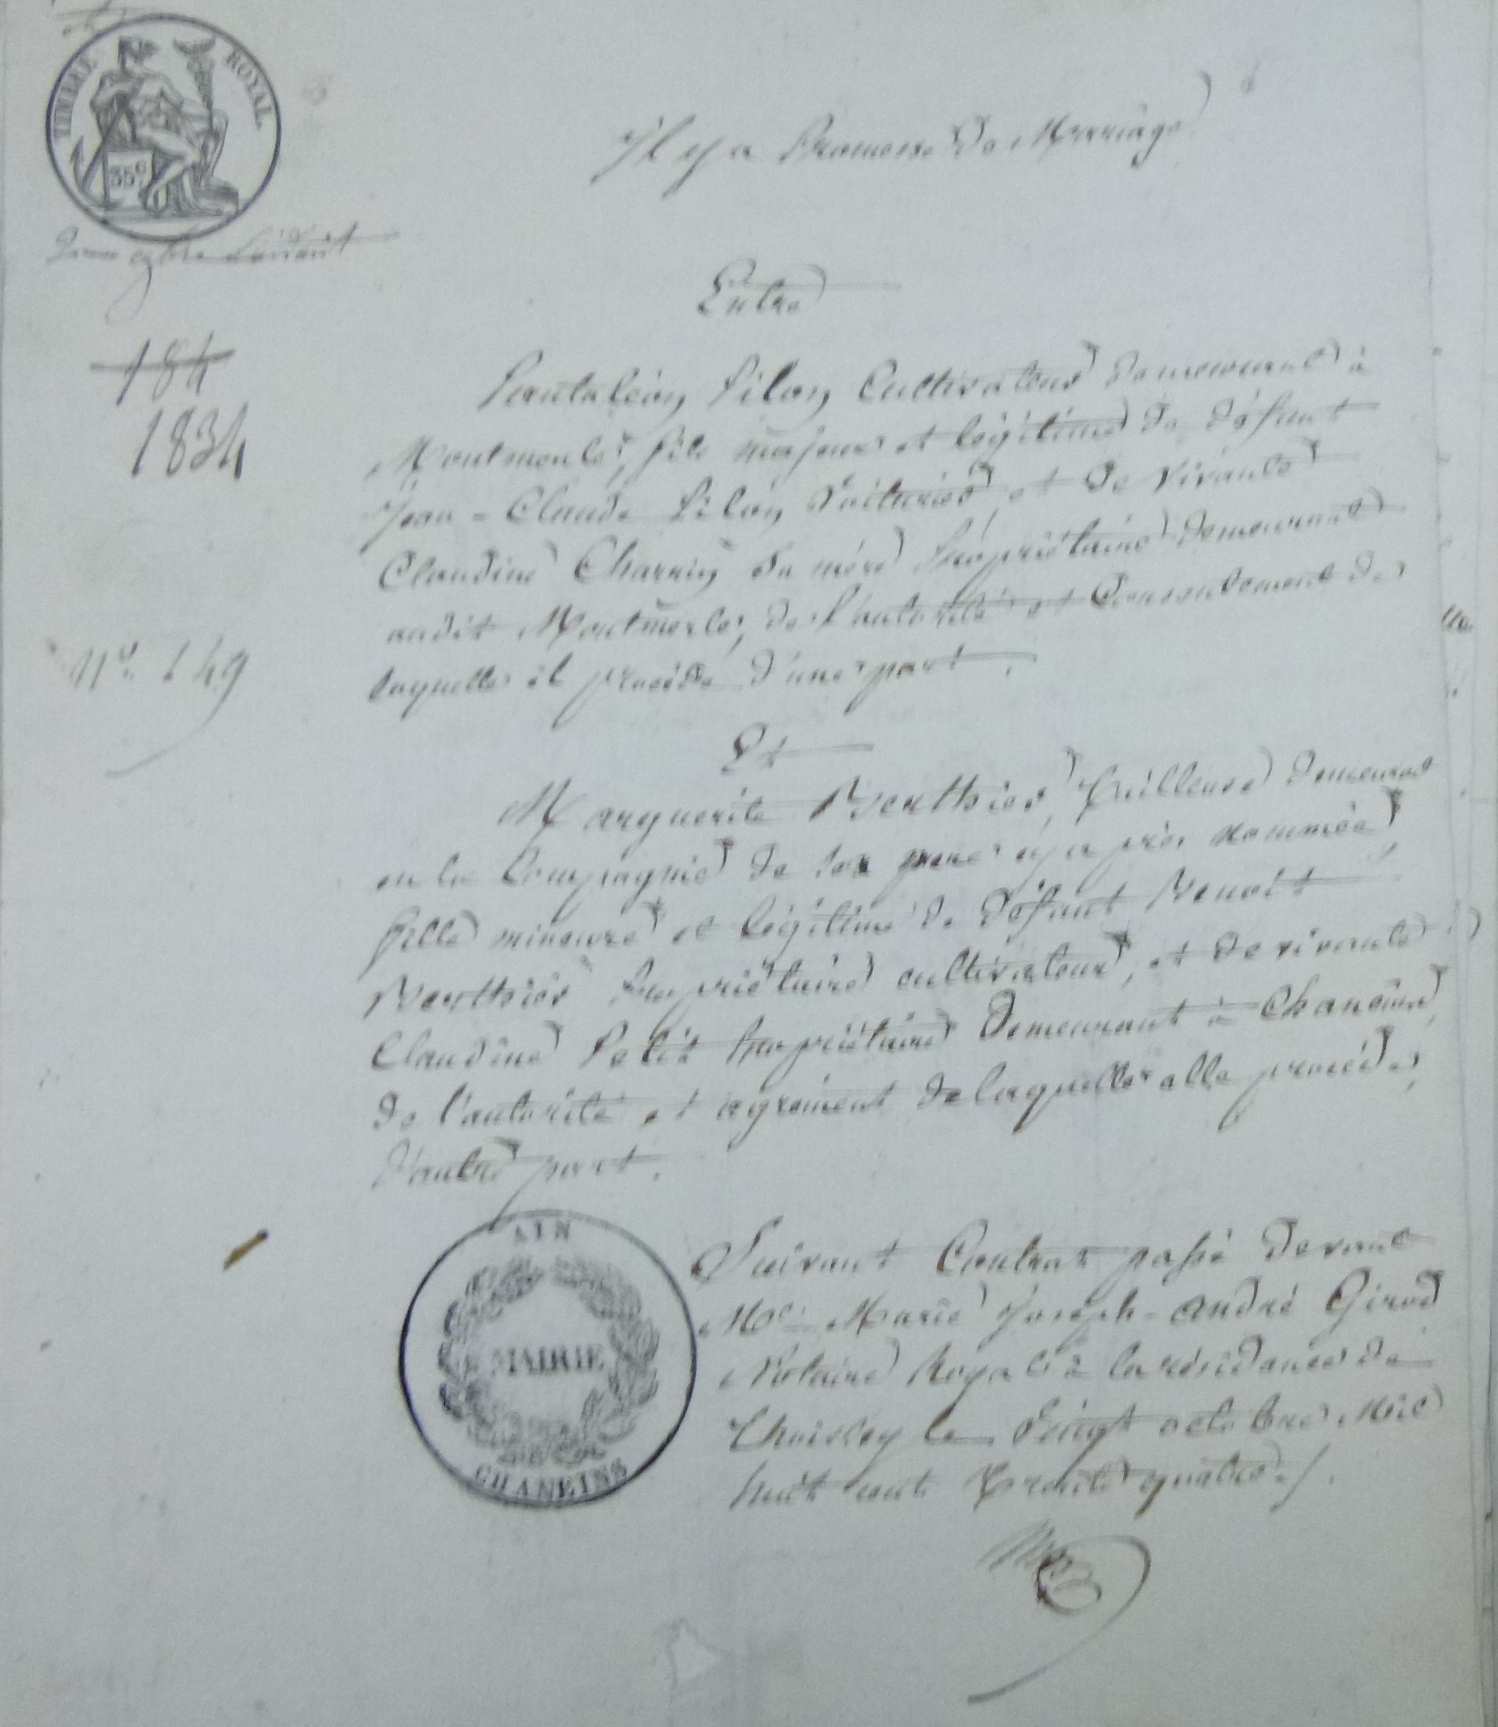 TIMBRE ROYAL
35 C
Il y a Promesse de Mariage
Entre
184
1834
Pantaléon Pilon Cultivateur demeurant à
Montmerle, fils majeur et légitime de défunt
Jean-Claude Pilon Voiturier, et de vivante
Claudine Charrin sa mére Propriétaire demeurant
audit Montmerle, de l'autorité et Consentement de
laquelle il procéde d'une part.
N° 149
Et
Marguerite Berthier, Tailleuse demeurant
en la Compagnie de sa mere cy après nommée,
fille mineure et légitime de défunt Benoît
Berthier Propriétaire cultivateur, et de vivante
Claudine Petit Propriétaire demeurant à Chaneins,
de l'autorité et agrément de laquelle elle procéde,
d'autre part.
Suivant Contrat passé devant
Me Marie Joseph-André Girod
Notaire Royal à la résidence de
Thoissey le Vingt octobre Mil
huit cent Trente quatre ./.
AIN
MAIRIE
CHANEINS